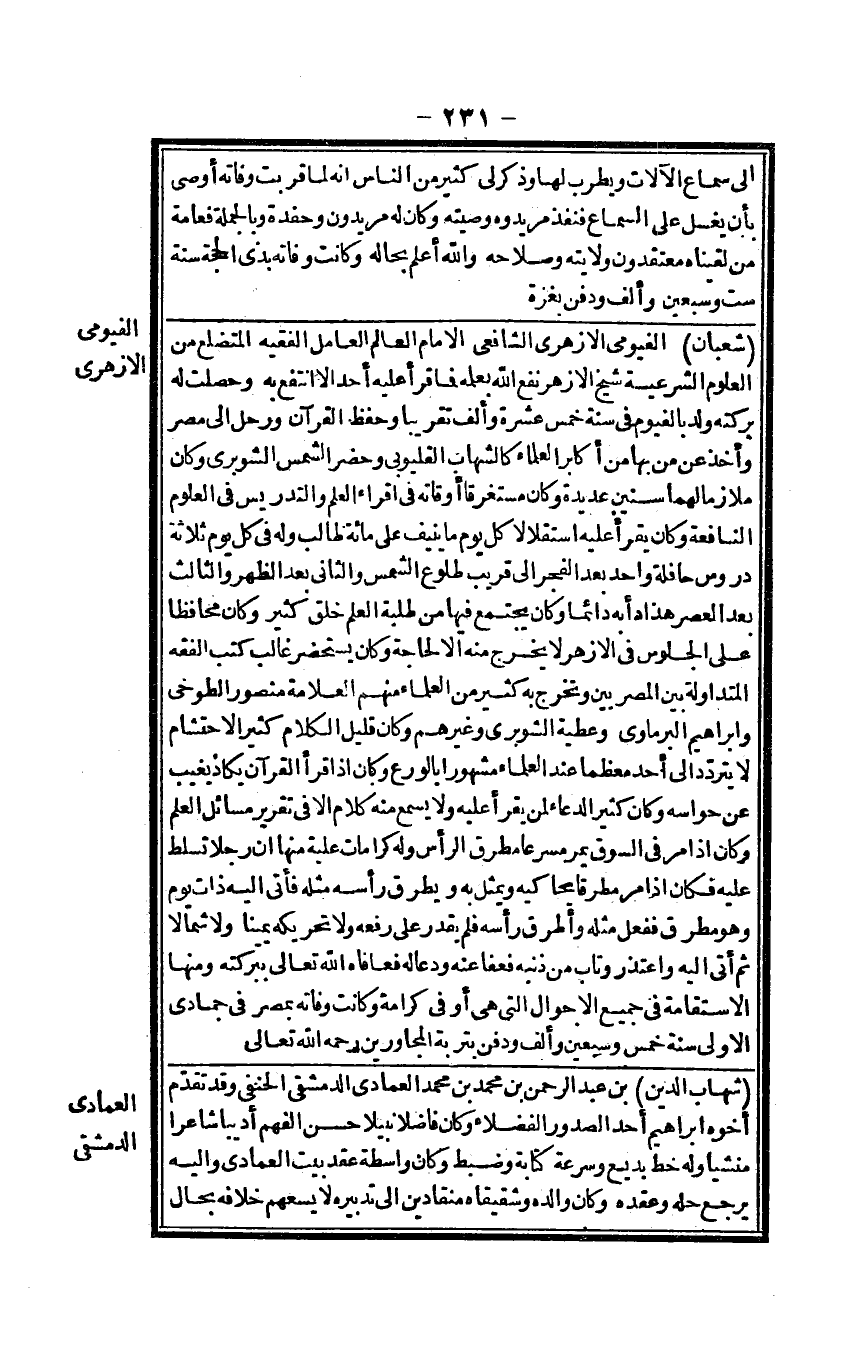 - ٢٣١ -
الى سماع الآلات ويطرب لها وذكر لى كثير من الناس انه لما قربت وفاته أوصى
بأن يغسل على السماع فنفذ مريدوه وصيته وكان له مريدون وحفدة وبالجملة فعامة
من لقيناه معتقدون ولايته وصلاحه والله أعلم بحاله وكانت وفاته بذى الحجة سنة
ست وسبعين وألف ودفن بغزة
الفيومى
الازهرى
(شعبان) الفيومى الازهرى الشافعى الامام العالم العامل الفقيه المتضلع من
العلوم الشرعية شيخ الازهر نفع الله بعلمه فما قرأ عليه أحد الا انتفع به وحصلت له
بركته ولد بالفيوم فى سنة خمس عشرة وألف تقريبا وحفظ القرآن ورحل الى مصر
وأخذ عن من بها من أكابر العلماء كالشهاب القليوبى وحضر الشمس الشوبرى وكان
ملازما لهما سنين عديدة وكان مستغرقا أوقاته فى اقراء العلم والتدريس فى العلوم
النافعة وكان يقرأ عليه استقلالا كل يوم ما ينيف على مائة طالب وله فى كل يوم ثلاثة
دروس حافلة واحد بعد الفجر الى قريب طلوع الشمس والثانى بعد الظهر والثالث
بعد العصر هذا دأبه دائما وكان يجتمع فيها من طلبة العلم خلق كثير وكان محافظا
على الجلوس فى الازهر لا يخرج منه الا لحاجة وكان يستحضر غالب كتب الفقه
المتداولة بين المصريين وتخرج به كثير من العلماء منهم العلامة منصور الطوخى
وابراهيم البرماوى وعطية الشوبرى وغيرهم وكان قليل الكلام كثير الاحتشام
لا يتردّد الى أحد معظما عند العلماء مشهورا بالورع وكان اذا قرأ القرآن يكاد يغيب
عن حواسه وكان كثير الدعاء لمن يقرأ عليه ولا يسمع منه كلام الا فى تقرير مسائل العلم
وكان اذا مر فى السوق يمر مسرعا مطرق الرأس وله كرامات علية منها ان رجلا تسلط
عليه فكان اذا مر مطرقا يحاكيه ويمثل به ويطرق رأسه مثله فأتى اليه ذات يوم
وهو مطرق ففعل مثله وأطرق رأسه فلم يقدر على رفعه ولا تحريكه يمينا ولا شمالا
ثم أتى اليه واعتذر وتاب من ذنبه فعفا عنه ودعا له فعافاه الله تعالى ببركته ومنها
الاستقامة فى جميع الاحوال التى هى أوفى كرامة وكانت وفاته بمصر فى جمادى
الاولى سنة خمس وسبعين وألف ودفن بتربة المجاورين رحمه الله تعالى
العمادى
الدمشقى
(شهاب الدين) بن عبد الرحمن بن محمد بن محمد العمادى الدمشقى الحنفى وقد تقدّم
أخوه ابراهيم أحد الصدور الفضلاء وكان فاضلا نبيلا حسن الفهم أديبا شاعرا
منشيا وله خط بديع وسرعة كتابة وضبط وكان واسطة عقد بيت العمادى واليه
يرجع حله وعقده وكان والده وشقيقاه منقادين الى تدبيره لا يسعهم خلافه بحال